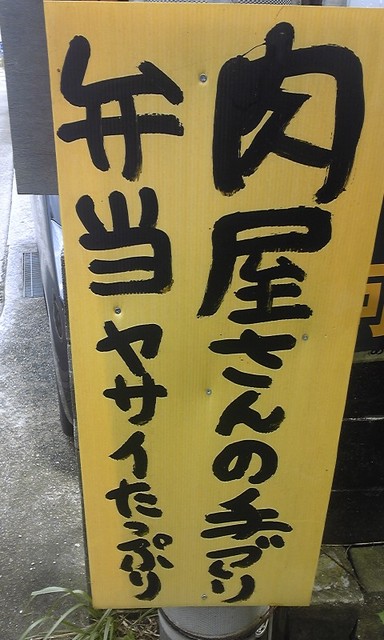 肉屋さんの手づくり
弁当ヤサイたっぷり